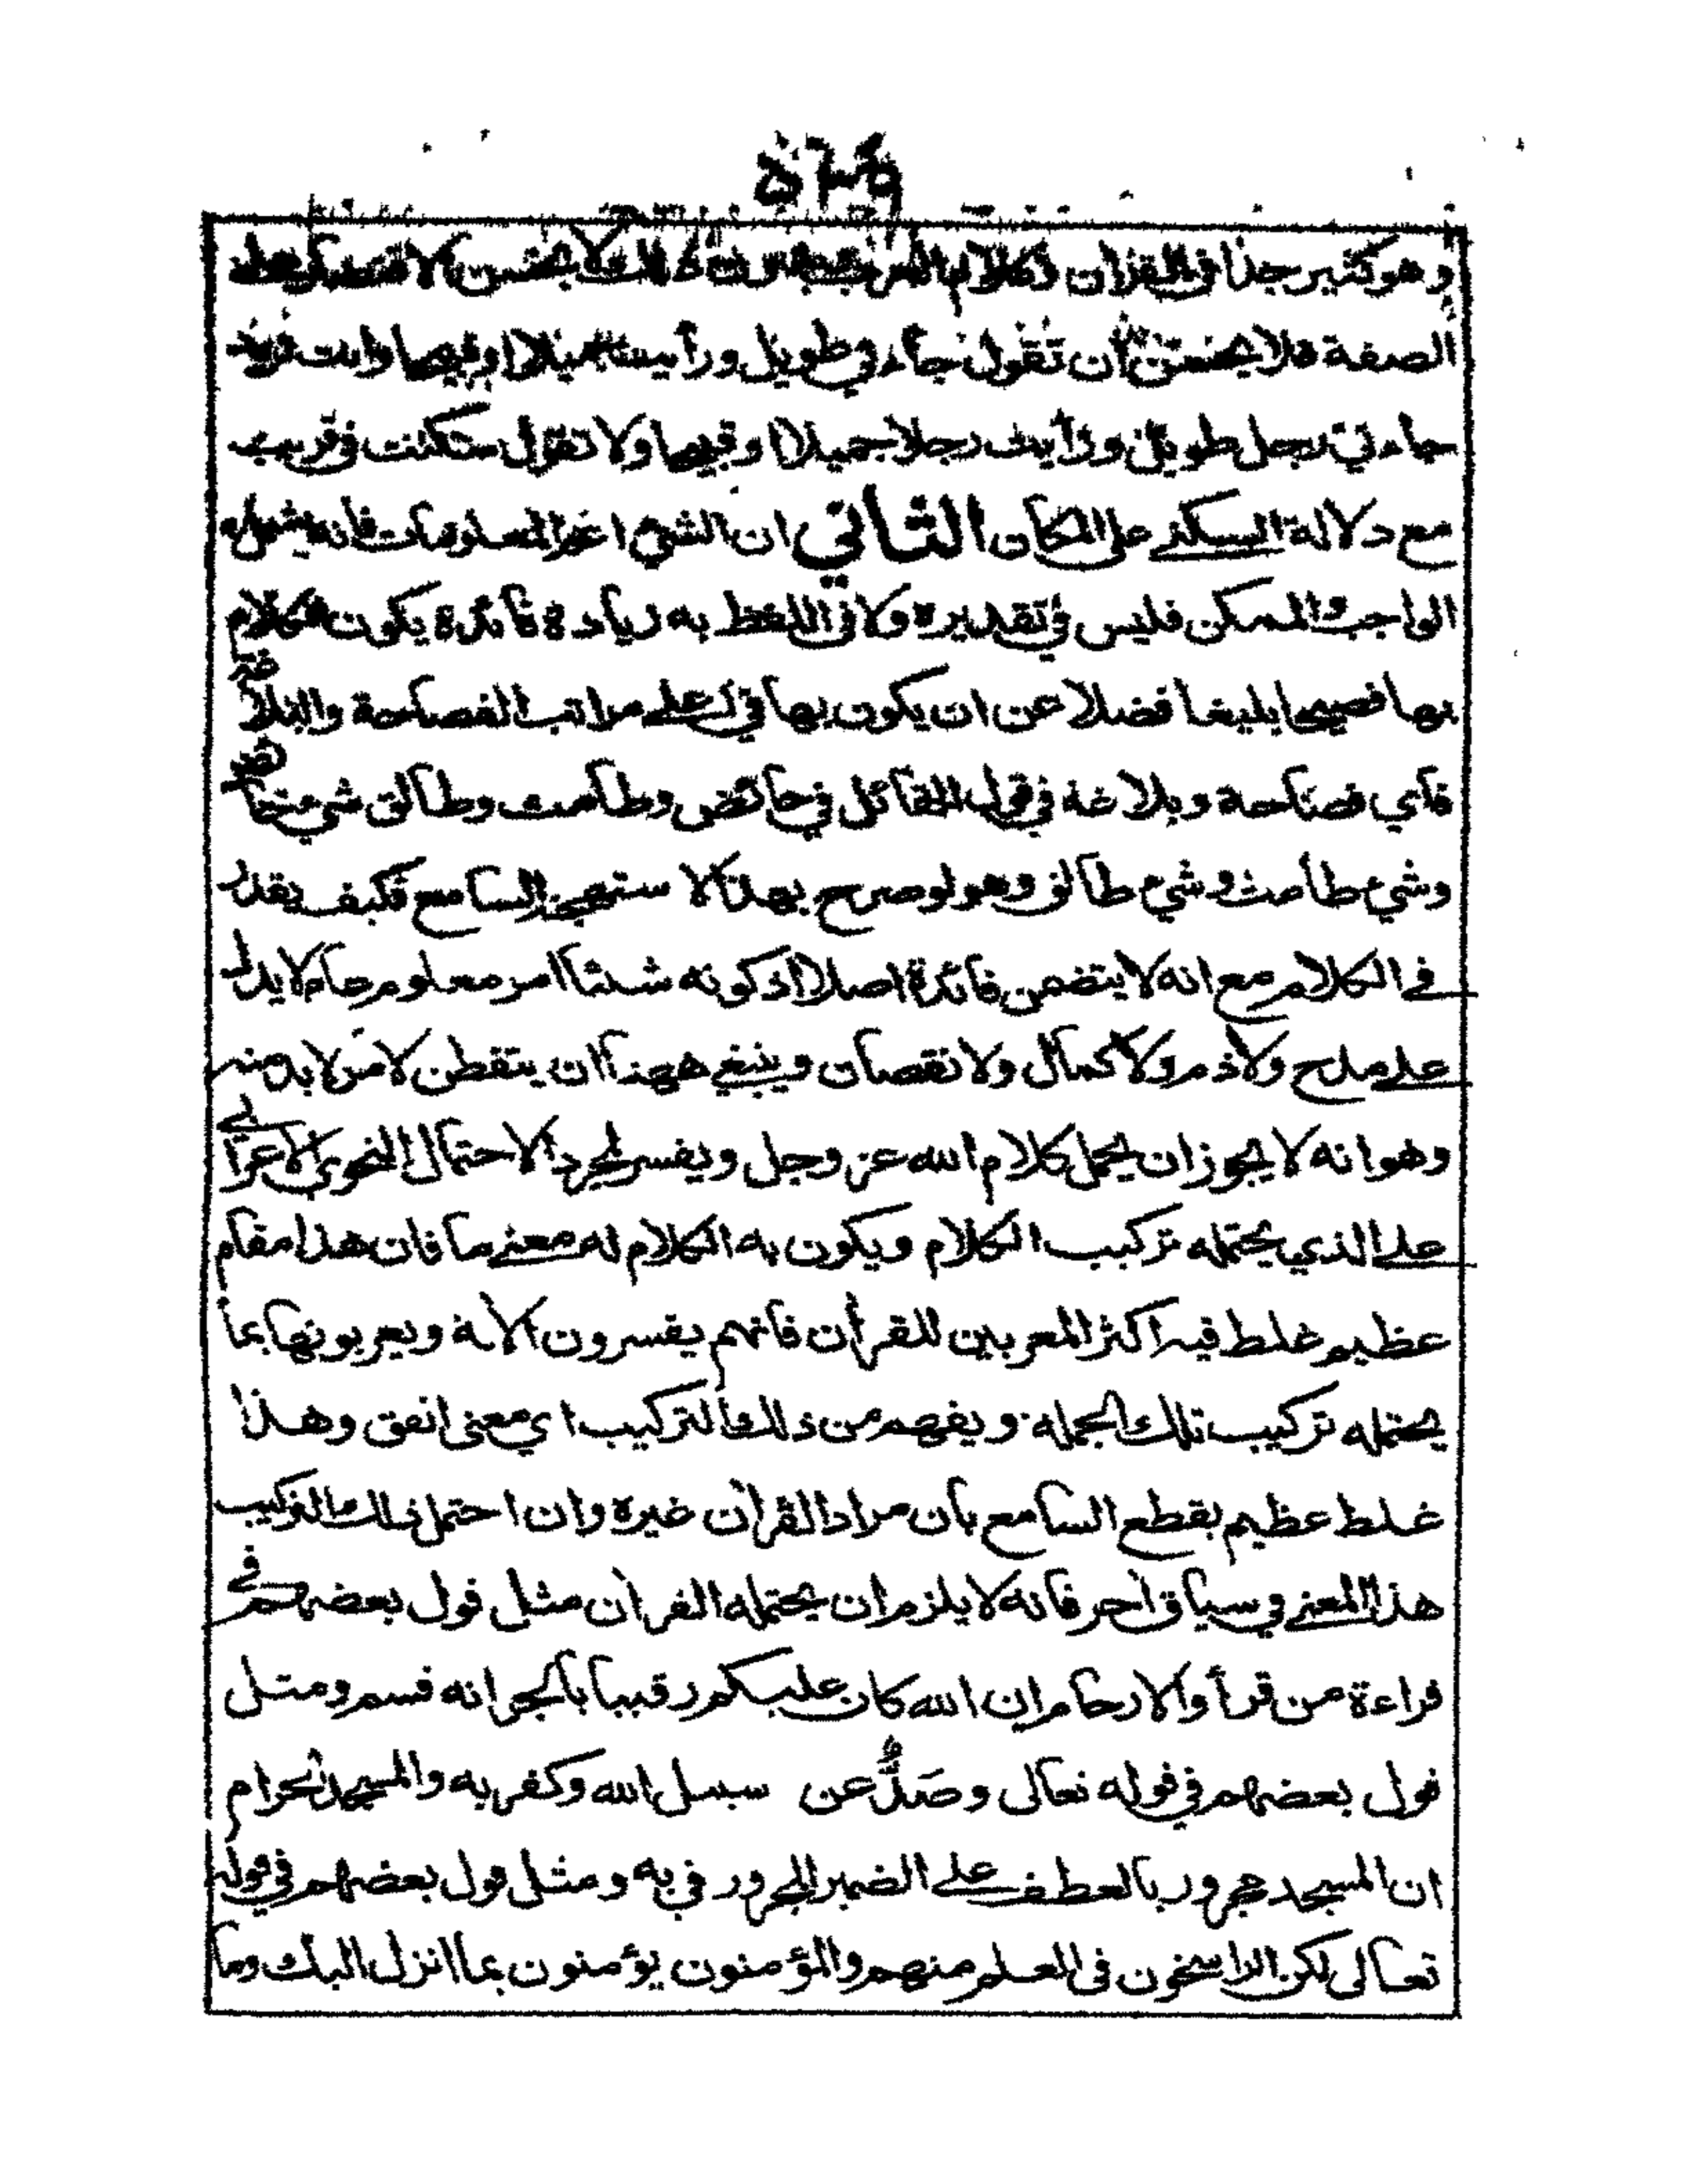 وهو كثير جدا في القران وكلام العرب بدون ذلك لا يحسن الاقتصار على
الصفة فلا يحسن ان تقول جاءني طويل ورأيت جميلا او قبيحا وانت تريد
جاءني رجل طويل ورأيت رجلا جميلا او قبيحا ولا تقول سكنت في قريب
مع دلالة السكنى على المكان الثاني ان الشيء اعم المعلومات فانه يشمل
الواجب والممكن فليس في تقديره ولا في اللفظ به زيادة فائدة يكون الكلام
بها فصيحا بليغا فضلا عن ان يكون بها في اعلى مراتب الفصاحة والبلاغة
فأي فصاحة وبلاغة في قول القائل في حائض وطامث وطالق شيء حائض
وشيء طامث وشيء طالق وهو لو صرح بهذا لاستهجنه السامع فكيف يقدر
في الكلام مع انه لا يتضمن فائدة اصلا اذ كونه شيئا امر معلوم عام لا يدل
على مدح ولا ذم ولا كمال ولا نقصان وينبغي ههنا ان يتفطن لامر لا بد منه
وهو انه لا يجوز ان يحمل كلام الله عز وجل ويفسر لمجرد الاحتمال النحوي الاعرابي
على الذي يحتمله تركيب الكلام ويكون به الكلام له معنى ما فان هذا مقام
عظيم غلط فيه اكثر المعربين للقرأن فانهم يفسرون الاية ويعربونها بما
يحتمله تركيب تلك الجملة ويفهم من ذلك التركيب اي معنى اتفق وهذا
غلط عظيم يقطع السامع بأن مراد القرأن غيره وان احتمل ذلك التركيب
هذا المعنى في سياق أخر فانه لا يلزم ان يحتمله القرأن مثل قول بعضهم في
قراءة من قرأ والارحام ان الله كان عليكم رقيبا بالجر انه قسم ومثل
قول بعضهم في قوله تعالى وصَدٌّ عن سبيل الله وكفر به والمسجد الحرام
ان المسجد مجرور بالعطف على الضمير المجرور في به ومثل قول بعضهم في قوله
تعالى لكن الراسخون في العلم منهم والمؤمنون يؤمنون بما انزل اليك وما